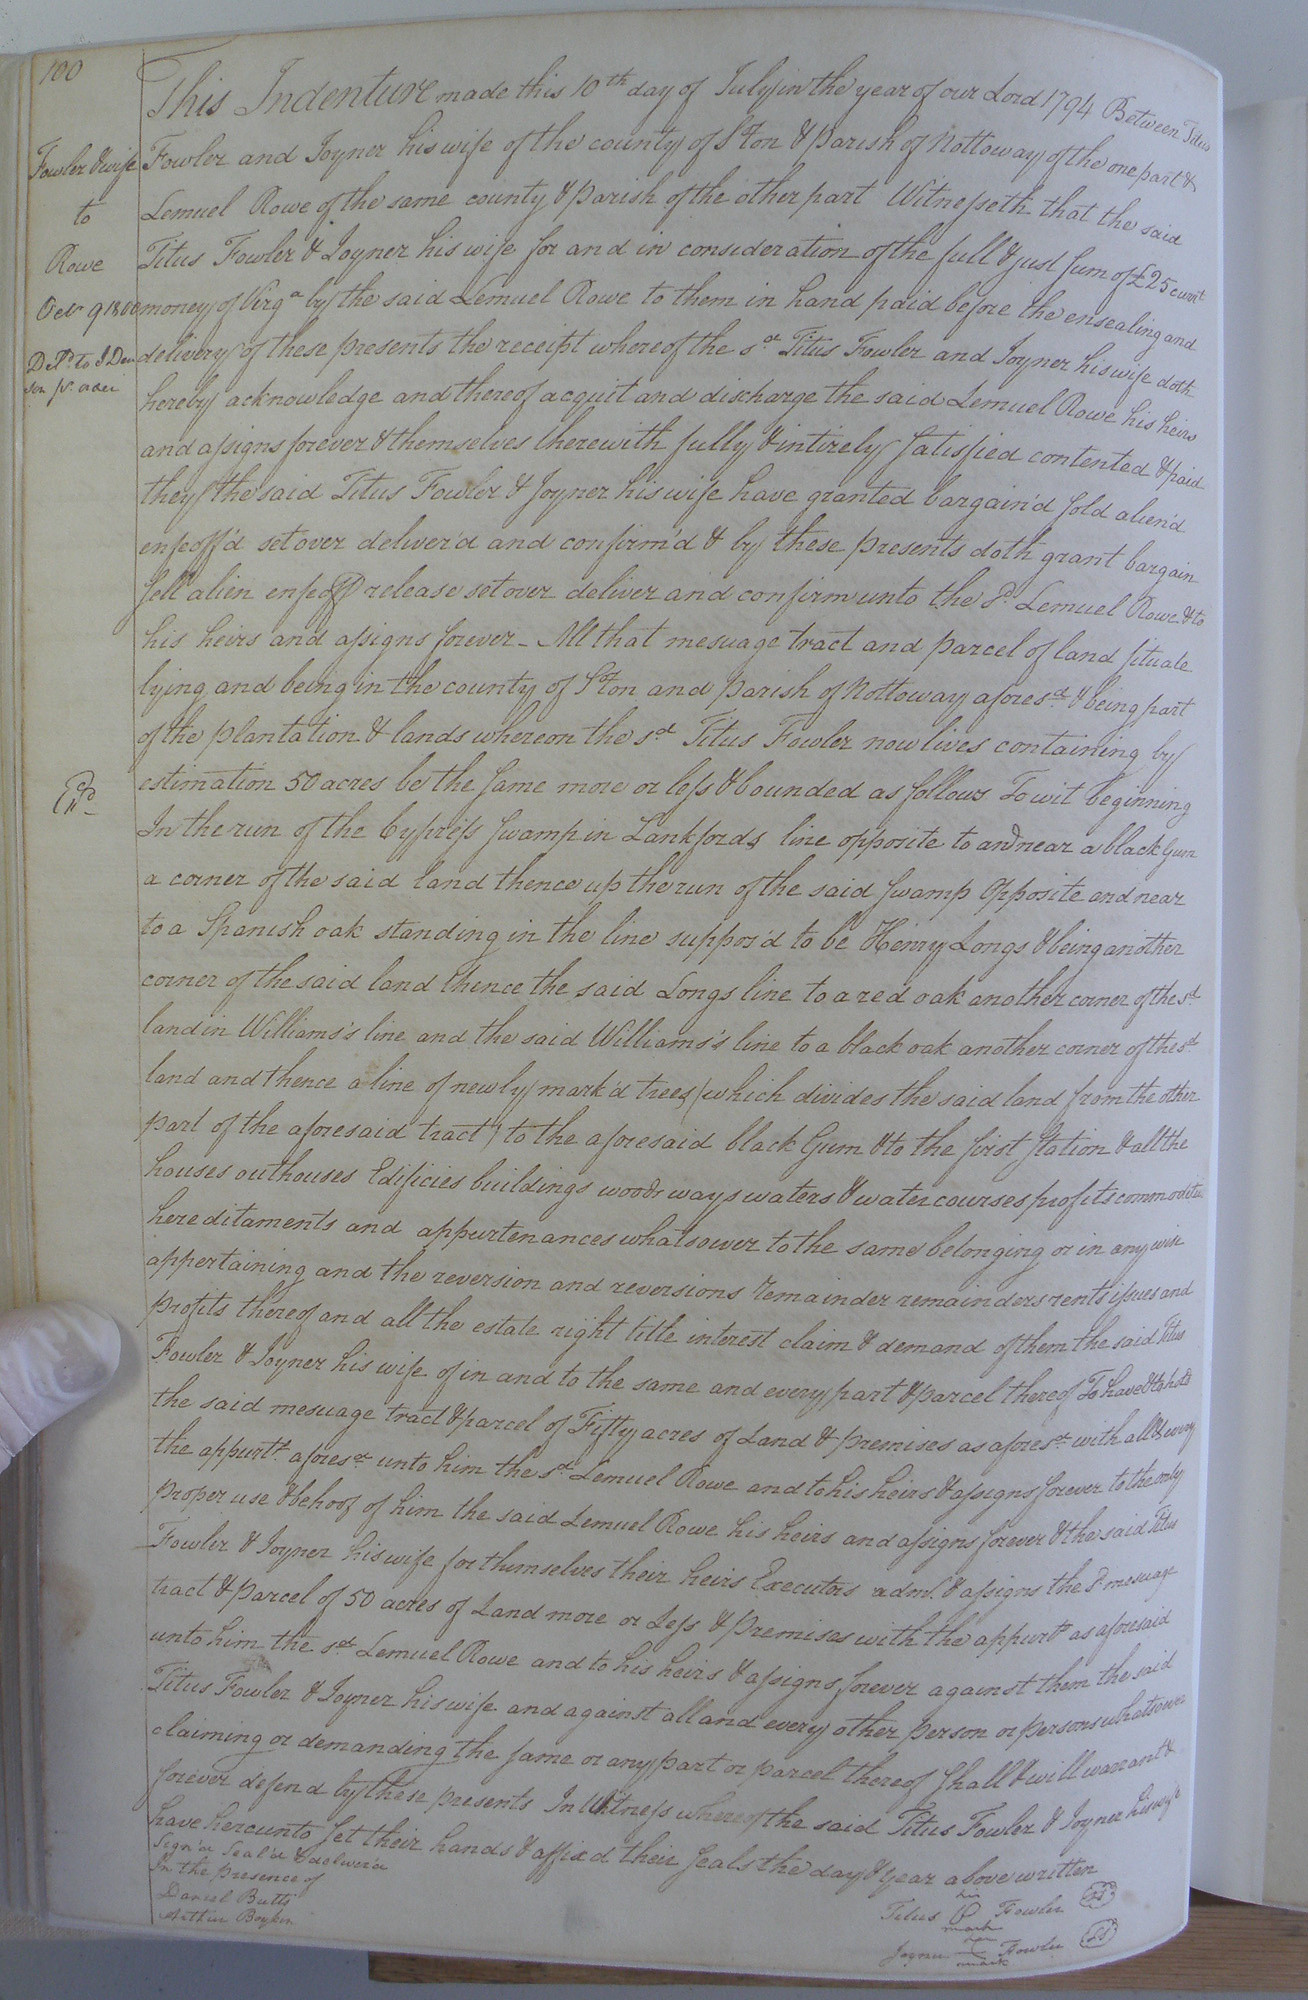 100
Fowler & wife
to
Rowe
Octr 9 1800
Deld to J Den
son pr order
Exd
This Indenture made this 10th day of July in the year of our Lord 1794 Between Titus
Fowler and Joyner his wife of the county of S'ton & Parish of Nottoway of the one part &
Lemuel Rowe of the same county & Parish of the other part Witnesseth that the said
Titus Fowler & Joyner his wife for and in consideration of the full & just sum of £25 currt
money of Virga by the said Lemuel Rowe to them in hand paid before the ensealing and
delivery of these presents the receipt whereof the sd Titus Fowler and Joyner his wife doth
hereby acknowledge and thereof acquit and discharge the said Lemuel Rowe his heirs
and assigns forever & themselves therewith fully & intirely satisfied contented & paid
they the said Titus Fowler & Joyner his wife have granted bargain'd sold alien'd
enfeoff'd set over deliver'd and confirm'd & by these presents doth grant bargain
sell alien enfeoff release set over deliver and confirm unto the sd Lemuel Rowe & to
his heirs and assigns forever - All that mesuage tract and parcel of land situate
lying and being in the county of S'ton and Parish of Nottoway aforesd & being part
of the plantation & lands whereon the sd Titus Fowler now lives containing by
estimation 50 acres be the same more or less & bounded as follows To wit beginning
In the run of the Cypress swamp in Lankfords line opposite to and near a black Gum
a corner of the said land thence up the run of the said swamp Opposite and near
to a Spanish oak standing in the line suppos'd to be Henry Longs & being another
corner of the said land thence the said Longs line to a red oak another corner of the sd
land in Williams's line and the said Williams's line to a black oak another corner of the sd
land and thence a line of newly mark'd trees (which divides the said land from the other
part of the aforesaid tract) to the aforesaid black Gum & to the first station & all the
houses outhouses Edificies buildings woods ways waters & water courses profits commodities
hereditaments and appurtenances whatsoever to the same belonging or in any wise
appertaining and the reversion and reversions remainder remainders rents issues and
profits thereof and all the estate right title interest claim & demand of them the said Titus
Fowler & Joyner his wife of in and to the same and every part & parcel thereof To have & to hold
the said mesuage tract & parcel of Fifty acres of Land & premises as aforesd with all & every
the appurts aforesd unto him the sd Lemuel Rowe and to his heirs & assigns forever to the only
proper use & behoof of him the said Lemuel Rowe his heirs and assigns forever & the said Titus
Fowler & Joyner his wife for themselves their heirs Executors adms & assigns the sd mesuage
tract & parcel of 50 acres of Land more or Less & Premises with the appurts as aforesaid
unto him the sd Lemuel Rowe and to his heirs & assigns forever against them the said
Titus Fowler & Joyner his wife and against all and every other person or persons whatsoever
claiming or demanding the same or any part or parcel thereof shall & will warrant &
forever defend by these presents In Witness whereof the said Titus Fowler & Joyner his wife
have hereunto set their hands & affix'd their seals the day & year above written
Sign'd Seal'd & deliver'd
In the presence of
Daniel Butts
Arthur Boykin
his
Titus Fowler LS
mark
her
Joyner Fowler LS
mark